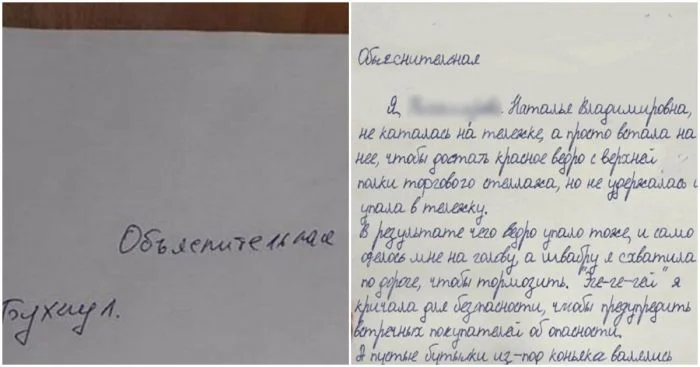 Объяснительная
Бухнул.
Объяснительная
Я, Наталья Владимировна,
не каталась на тележке, а просто встала на
нее, чтобы достать красное ведро с верхней
полки торгового стеллажа, но не удержалась и
упала в тележку.
В результате чего ведро упало тоже, и само
оделось мне на голову, а швабру я схватила
по дороге, чтобы тормозить. "Эге-ге-гей" я
кричала для безопасности, чтобы предупредить
встречных покупателей об опасности.
А пустые бутылки из-под коньяка валялись